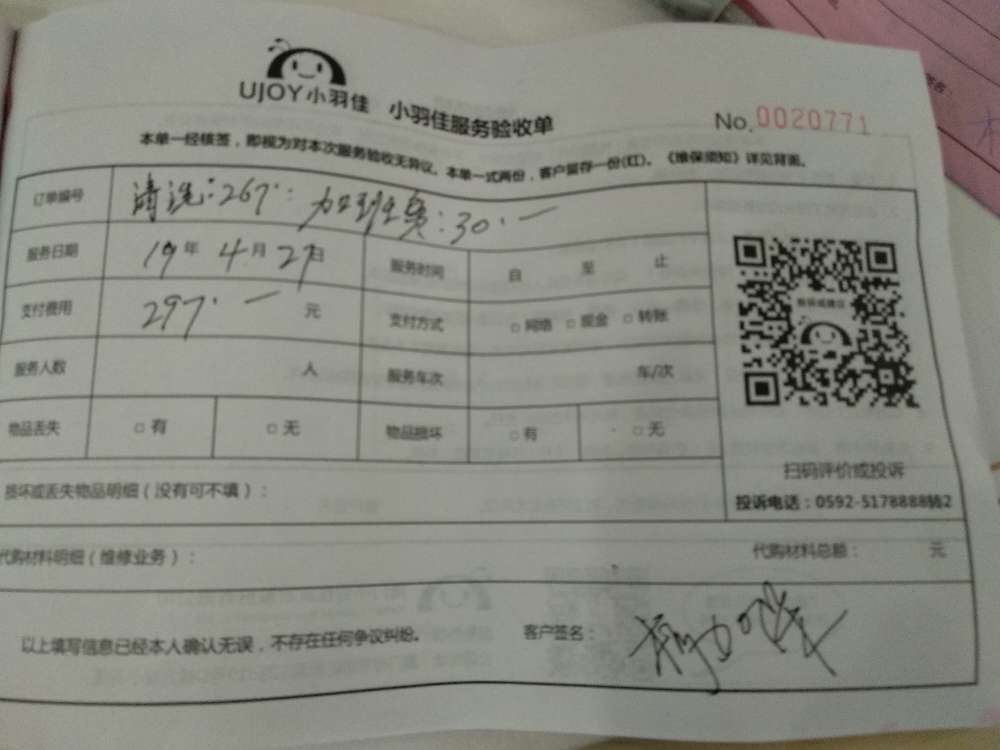 UJOY小羽佳 小羽佳服务验收单
No.0020771
本单一经核签，即视为对本次服务验收无异议。本单一式两份，客户留存一份(红)。《维保须知》详见背面。
订单编号 清洗:267: 加班费:30.一
服务日期 19年 4月 27日 服务时间 自 至 止
支付费用 297.一 元 支付方式 □网络 □现金 □转账
服务人数 人 服务车次 车/次
物品丢失 □有 □无 物品损坏 □有 □无
扫码评价或投诉
投诉电话：0592-5178888转2
损坏或丢失物品明细（没有可不填）：
代购材料明细（维修业务）： 代购材料总额： 元
以上填写信息已经本人确认无误，不存在任何争议纠纷。 客户签名：